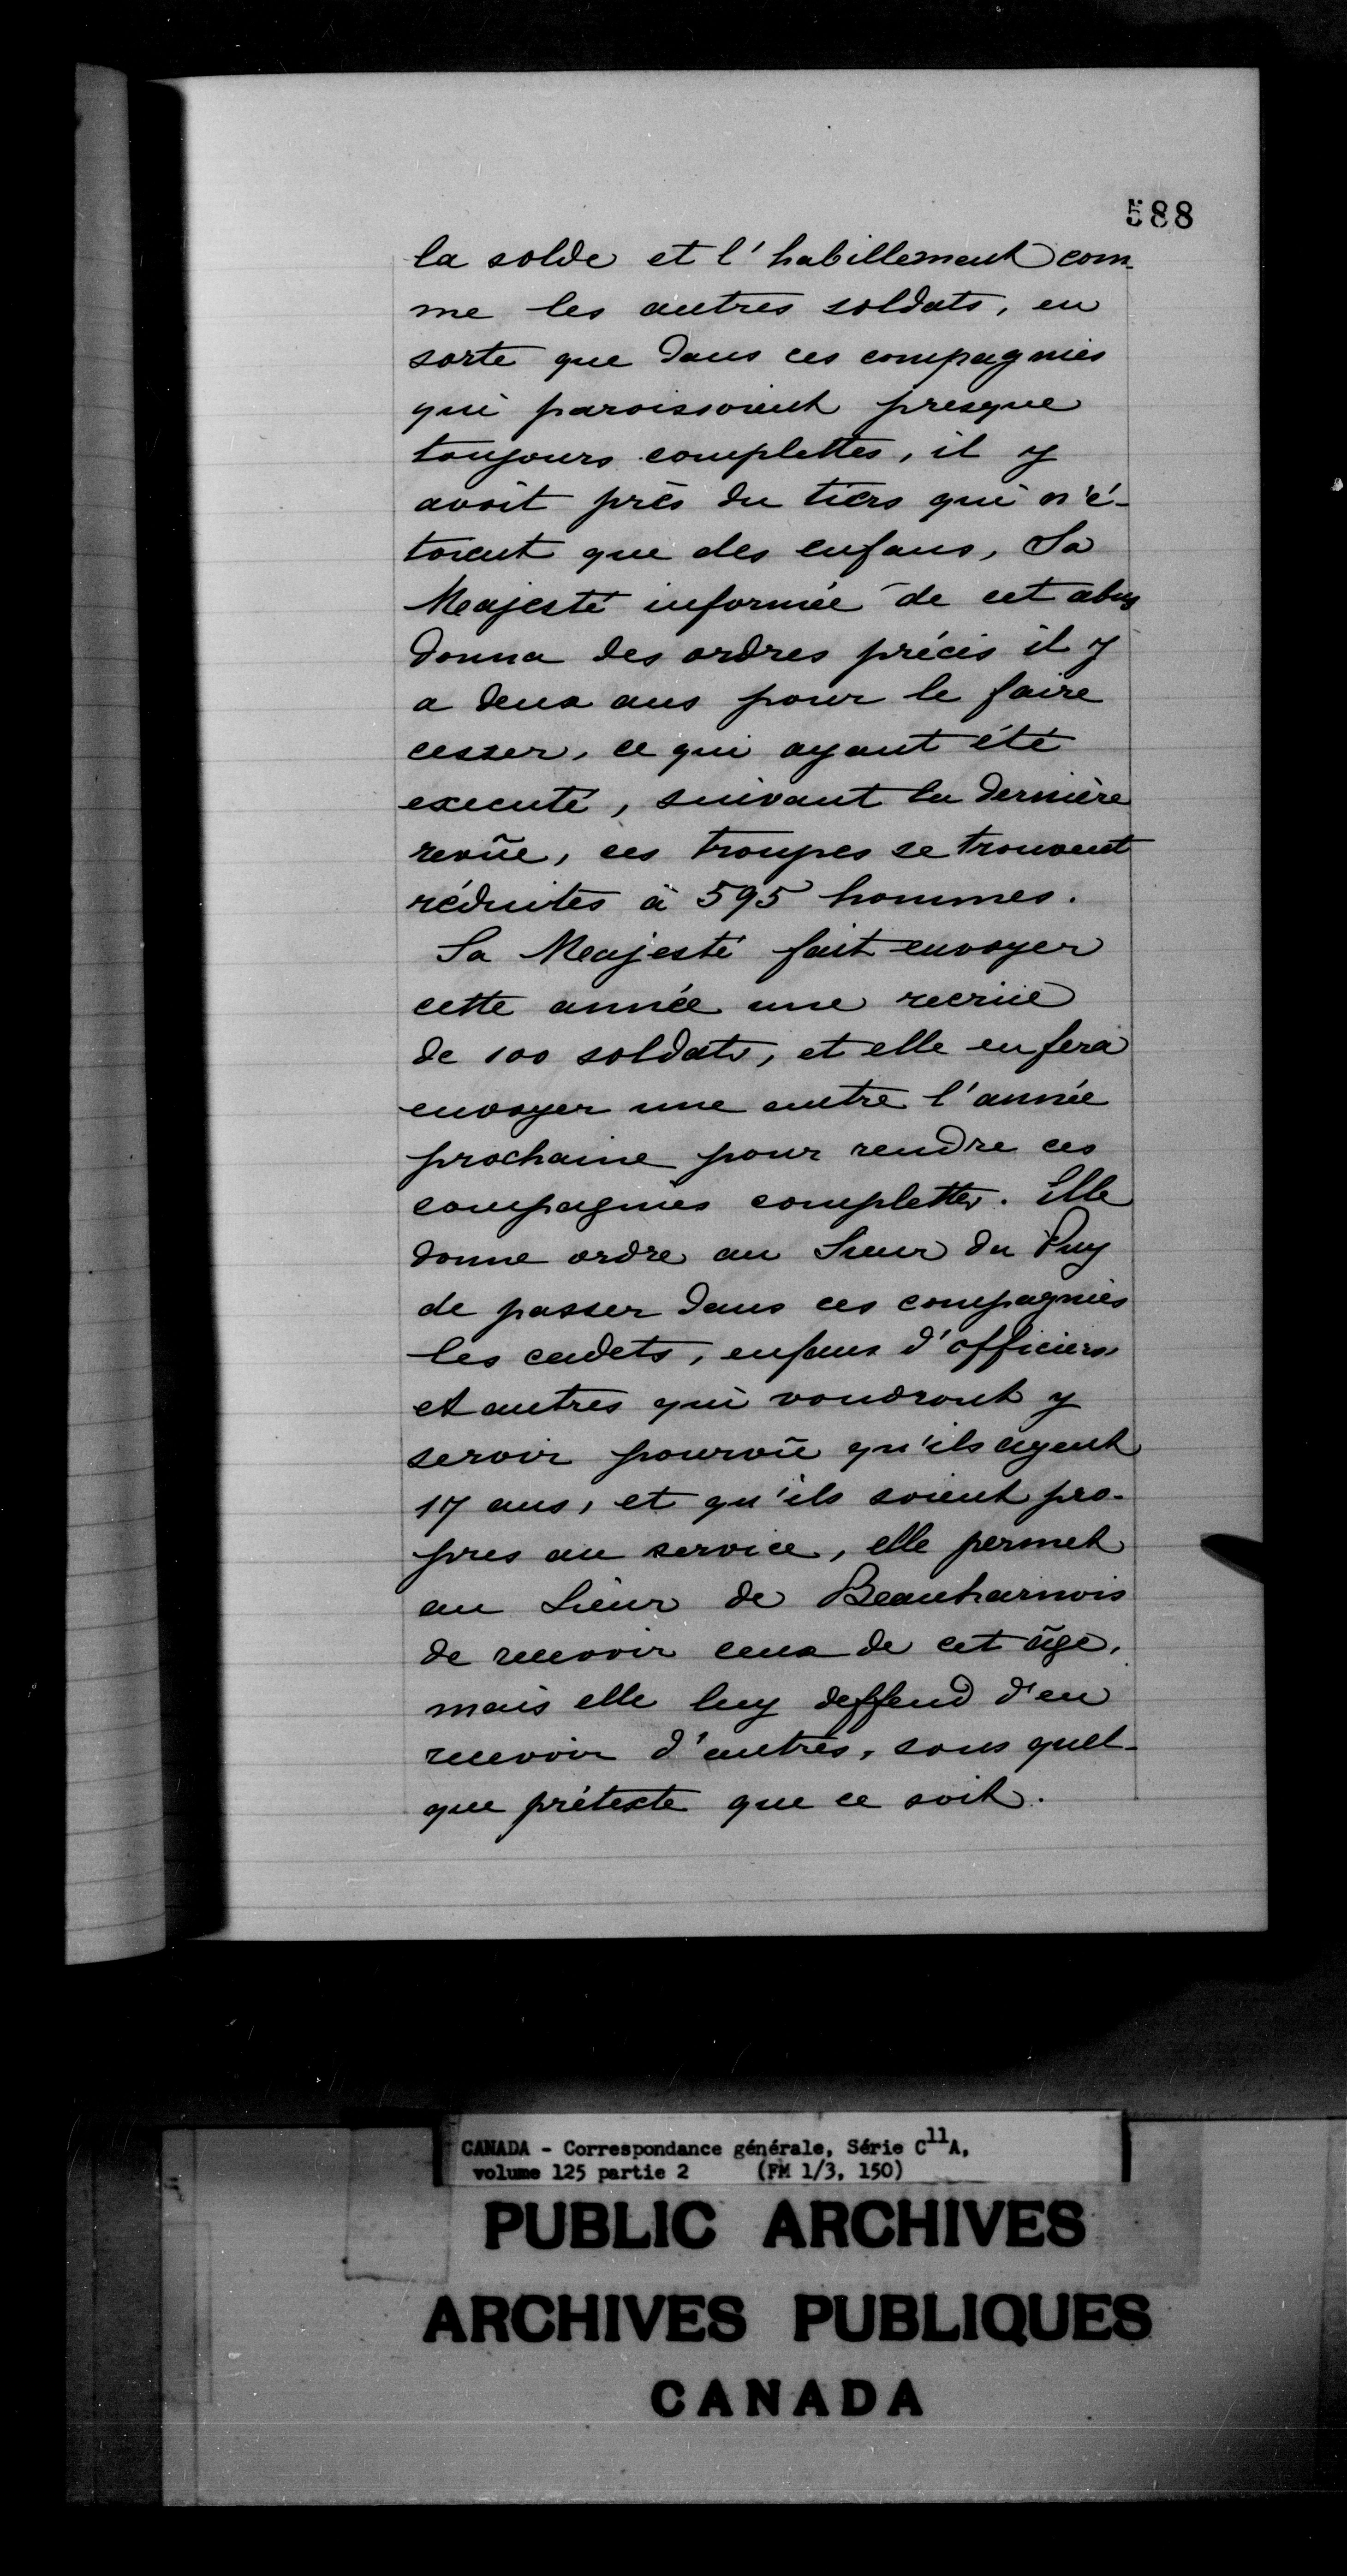 588
la solde et l'habillement com-
me les autres soldats, en
sorte que dans ces compagnies
qui paroissoient presque
toujours complettes, il y
avoit près du tiers qui n'é-
toient que des enfans, Sa
Majesté informée de cet abus
donna des ordres précis il y
a deux ans pour le faire
cesser, ce qui ayant été
executé, suivant la dernière
revüe, ces troupes se trouvent
réduites à 595 hommes.
Sa Majesté fait envoyer
cette année une recrüe
de 100 soldats, et elle en fera
envoyer une autre l'année
prochaine pour rendre ces
compagnies complettes. Elle
donne ordre au Sieur du Puy
de passer dans ces compagnies
les cadets, enfans d'officiers
et autres qui voudront y
servir pourvü qu'ils ayent
17 ans, et qu'ils soient pro-
pres au service, elle permet
au Sieur de Beauharnois
de recevoir ceux de cet âge,
mais elle luy deffend d'en
recevoir d'autres, sous quel-
que prétexte que ce soit.
CANADA - Correspondance générale, Série C11A,
volume 125 partie 2 (FM 1/3, 150)
PUBLIC ARCHIVES
ARCHIVES PUBLIQUES
CANADA